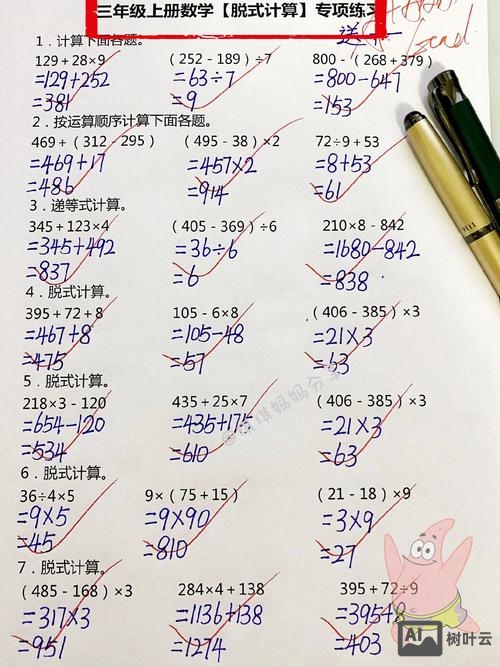 三年级上册数学【脱式计算】专项练习
1．计算下面各题。
129＋28×9 （252﹣189）÷7 800﹣（268＋379）
=129+252 =63÷7 =800-647
=381 =9 =153
2．按运算顺序计算下面各题。
469＋（312﹣295） （495﹣38）×2 72÷9＋53
=469+17 =457×2 =8+53
=486 =914 =61
3．递等式计算。
345＋123×4 （405﹣369）÷6 210×8﹣842
=345+492 =36÷6 =1680-842
=837 =6 =838
4．脱式计算。
395＋72＋8 105﹣6×8 （406﹣385）×3
=467+8 =105-48 =21×3
=475 =57 =63
5．脱式计算。
218×3﹣120 435＋25×7 （406﹣385）×3
=654-120 =435+175 =21×3
=534 =610 =63
6．脱式计算。
36÷4×5 9×（75＋15） （21﹣18）×9
=9×5 =9×90 =3×9
=45 =810 =27
7．脱式计算。
（485﹣168）×3 284×4＋138 395＋72÷9
=317×3 =1136+138 =395+8
=951 =1274 =403
树叶云